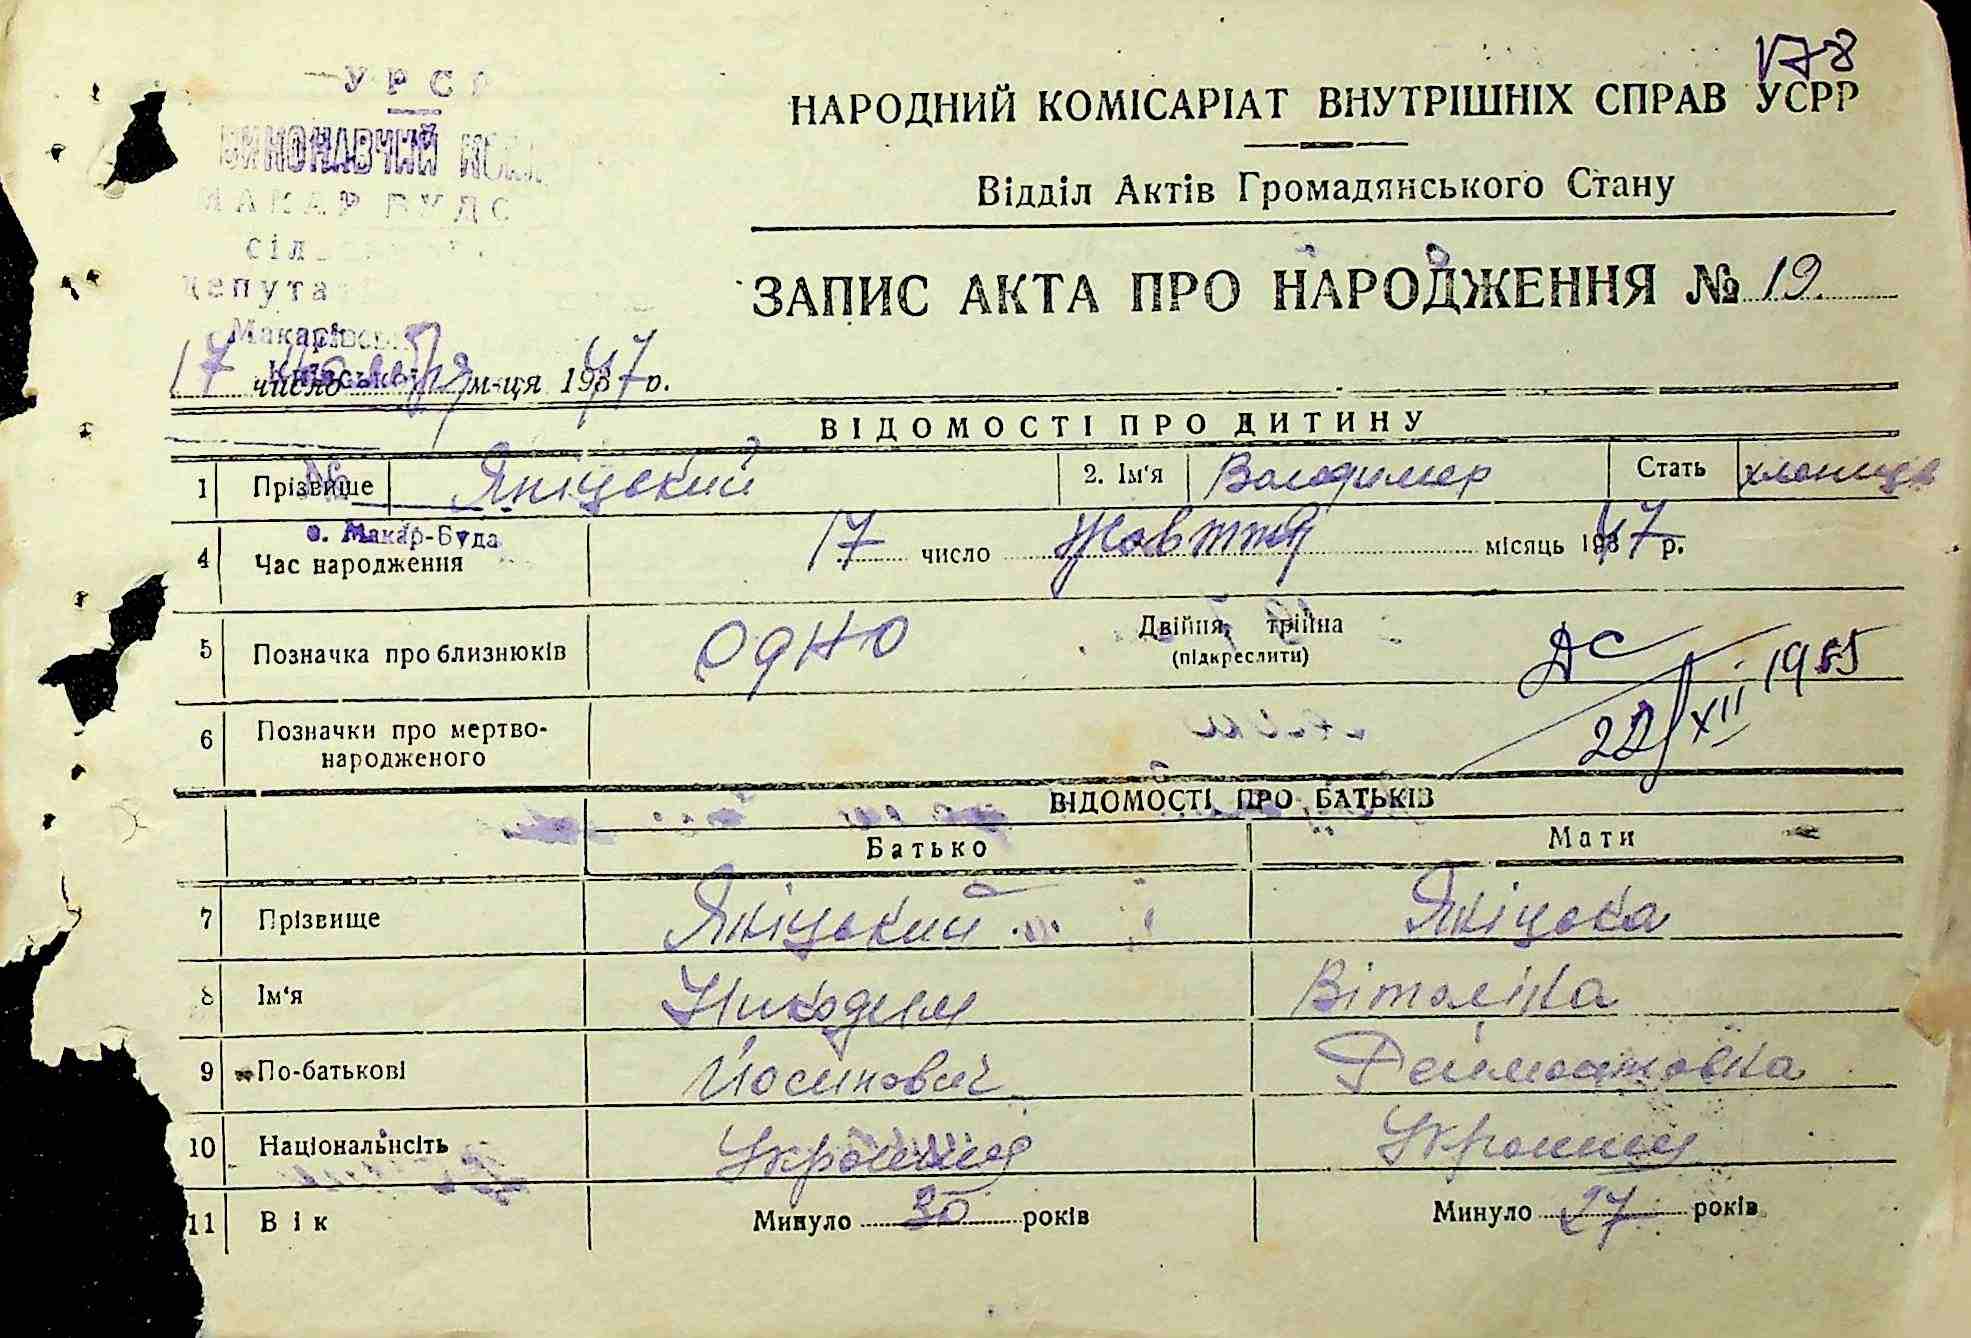 178
УРСР
ВИКОНАВЧИЙ
МАКАР БУДС
депута
НАРОДНИЙ КОМІСАРІАТ ВНУТРІШНІХ СПРАВ УСРР
Відділ Актів Громадянського Стану
ЗАПИС АКТА ПРО НАРОДЖЕННЯ № 19
17 число м-ця 1947 р.
ВІДОМОСТІ ПРО ДИТИНУ
1 Прізвище Яніцький 2. Ім'я Володимер Стать хлопець
№
с. Макар-Буда
4 Час народження 17 число Жовтня місяць 1947 р.
5 Позначка про близнюків одно Двійня, трійна
(підкреслити)
ДС
22/XII 1955
6 Позначки про мертво-
народженого
ВІДОМОСТІ ПРО БАТЬКІВ
Батько Мати
7 Прізвище Яніцький Яніцька
8 Ім'я Никодим Віталіна
9 По-батькові Йосипович
10 Національнсіть Українец Українец
11 Вік Минуло 30 років Минуло 27 років